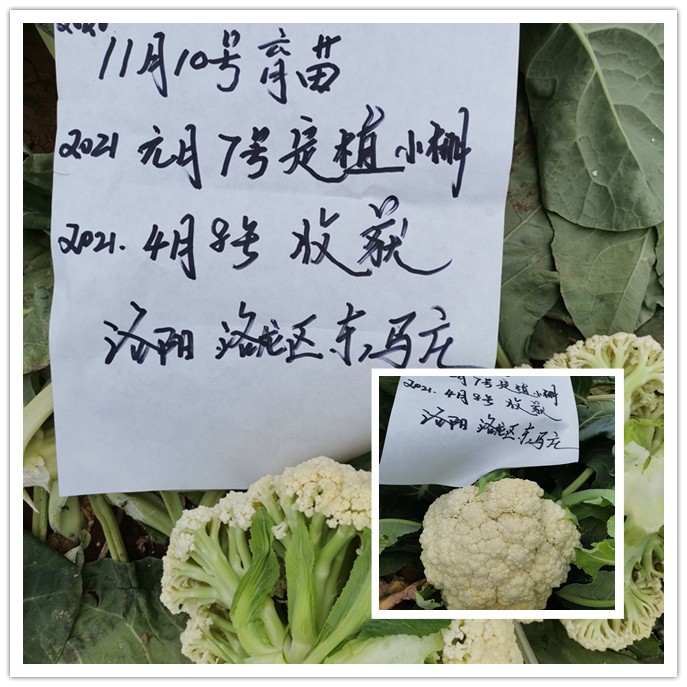 2020
11月10号育苗
2021 元月7号定植小棚
2021. 4月8号 收获
洛阳 洛龙区东马庄
月7号定植小棚
2021. 4月8号 收获
洛阳 洛龙区东马庄